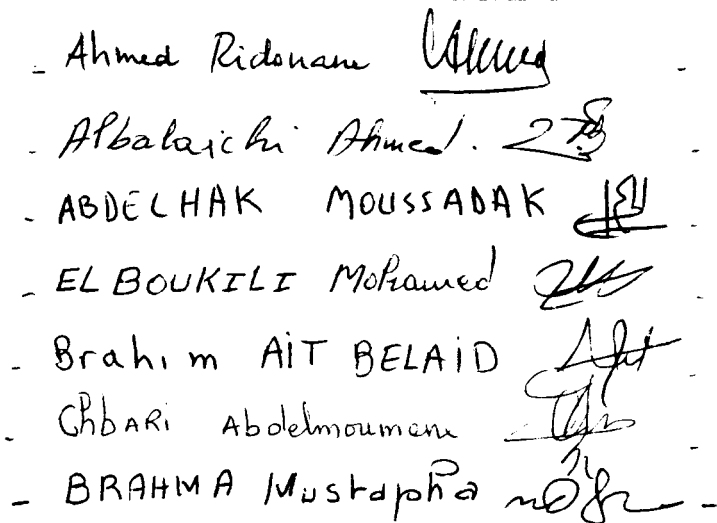 - Ahmed Ridouane
- Albalaichi Ahmed.
- ABDELHAK MOUSSADAK
- EL BOUKILI Mohamed
- Brahim AIT BELAID
- ChbARi Abdelmoumene
- BRAHMA Mustapha